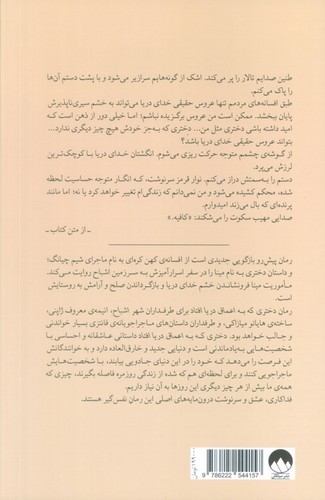 طنین صدایم تالار را پر می‌کند. اشک از گونه‌هایم سرازیر می‌شود و با پشت دستم آن‌ها
را پاک می‌کنم.
طبق افسانه‌های مردمم تنها عروس حقیقی خدای دریا می‌تواند به خشم سیری‌ناپذیرش
پایان ببخشد. ممکن است من عروس برگزیده نباشم؛ اما خیلی دور از ذهن است که
امید داشته باشی دختری مثل من... دختری که به‌جز خودش هیچ چیز دیگری ندارد...
بتواند عروس حقیقی خدای دریا باشد؟
از گوشه‌ی چشمم متوجه حرکت ریزی می‌شوم. انگشتان خدای دریا با کوچک‌ترین
لرزش می‌پرد.
دستم را به‌سمتش دراز می‌کنم. نوار قرمز سرنوشت، که انگار متوجه حساسیت لحظه
شده، محکم کشیده می‌شود و من نمی‌دانم که زندگی‌ام تغییر خواهد کرد یا نه؛ اما مانند
پرنده‌ای که بال می‌زند امیدوارم.
صدایی مهیب سکوت را می‌شکند: «کافیه.»
ـ از متن کتاب ـ
رمان پیش‌رو بازگویی جدیدی است از افسانه‌ی کهن کره‌ای به نام ماجرای شیم چیانگ؛
و داستان دختری به نام مینا را در سفر اسرارآمیزش به سرزمین اشباح روایت می‌کند.
مأموریت مینا فرونشاندن خشم خدای دریا و برگرداندن صلح و آرامش به روستایش
است.
رمان دختری که به اعماق دریا افتاد برای طرفداران شهر اشباح، انیمه‌ی معروف ژاپنی،
ساخته‌ی هایائو میازاکی، و طرفداران داستان‌های ماجراجویانه‌ی فانتزی بسیار خواندنی
و جالب خواهد بود. دختری که به اعماق دریا افتاد داستانی عاشقانه و احساسی با
شخصیت‌هایی به‌یادماندنی است و دنیایی جدید و خارق‌العاده دارد و به خوانندگانش
این فرصت را می‌دهد که خود را در این دنیای جادویی بیابند، با شخصیت‌هایش
ماجراجویی کنند و برای لحظه‌ای هم که شده از زندگی روزمره فاصله بگیرند، چیزی که
همه‌ی ما بیش از هر چیز دیگری این روزها به آن نیاز داریم.
فداکاری، عشق و سرنوشت درون‌مایه‌های اصلی این رمان نفس‌گیر هستند.
9 786222 544157